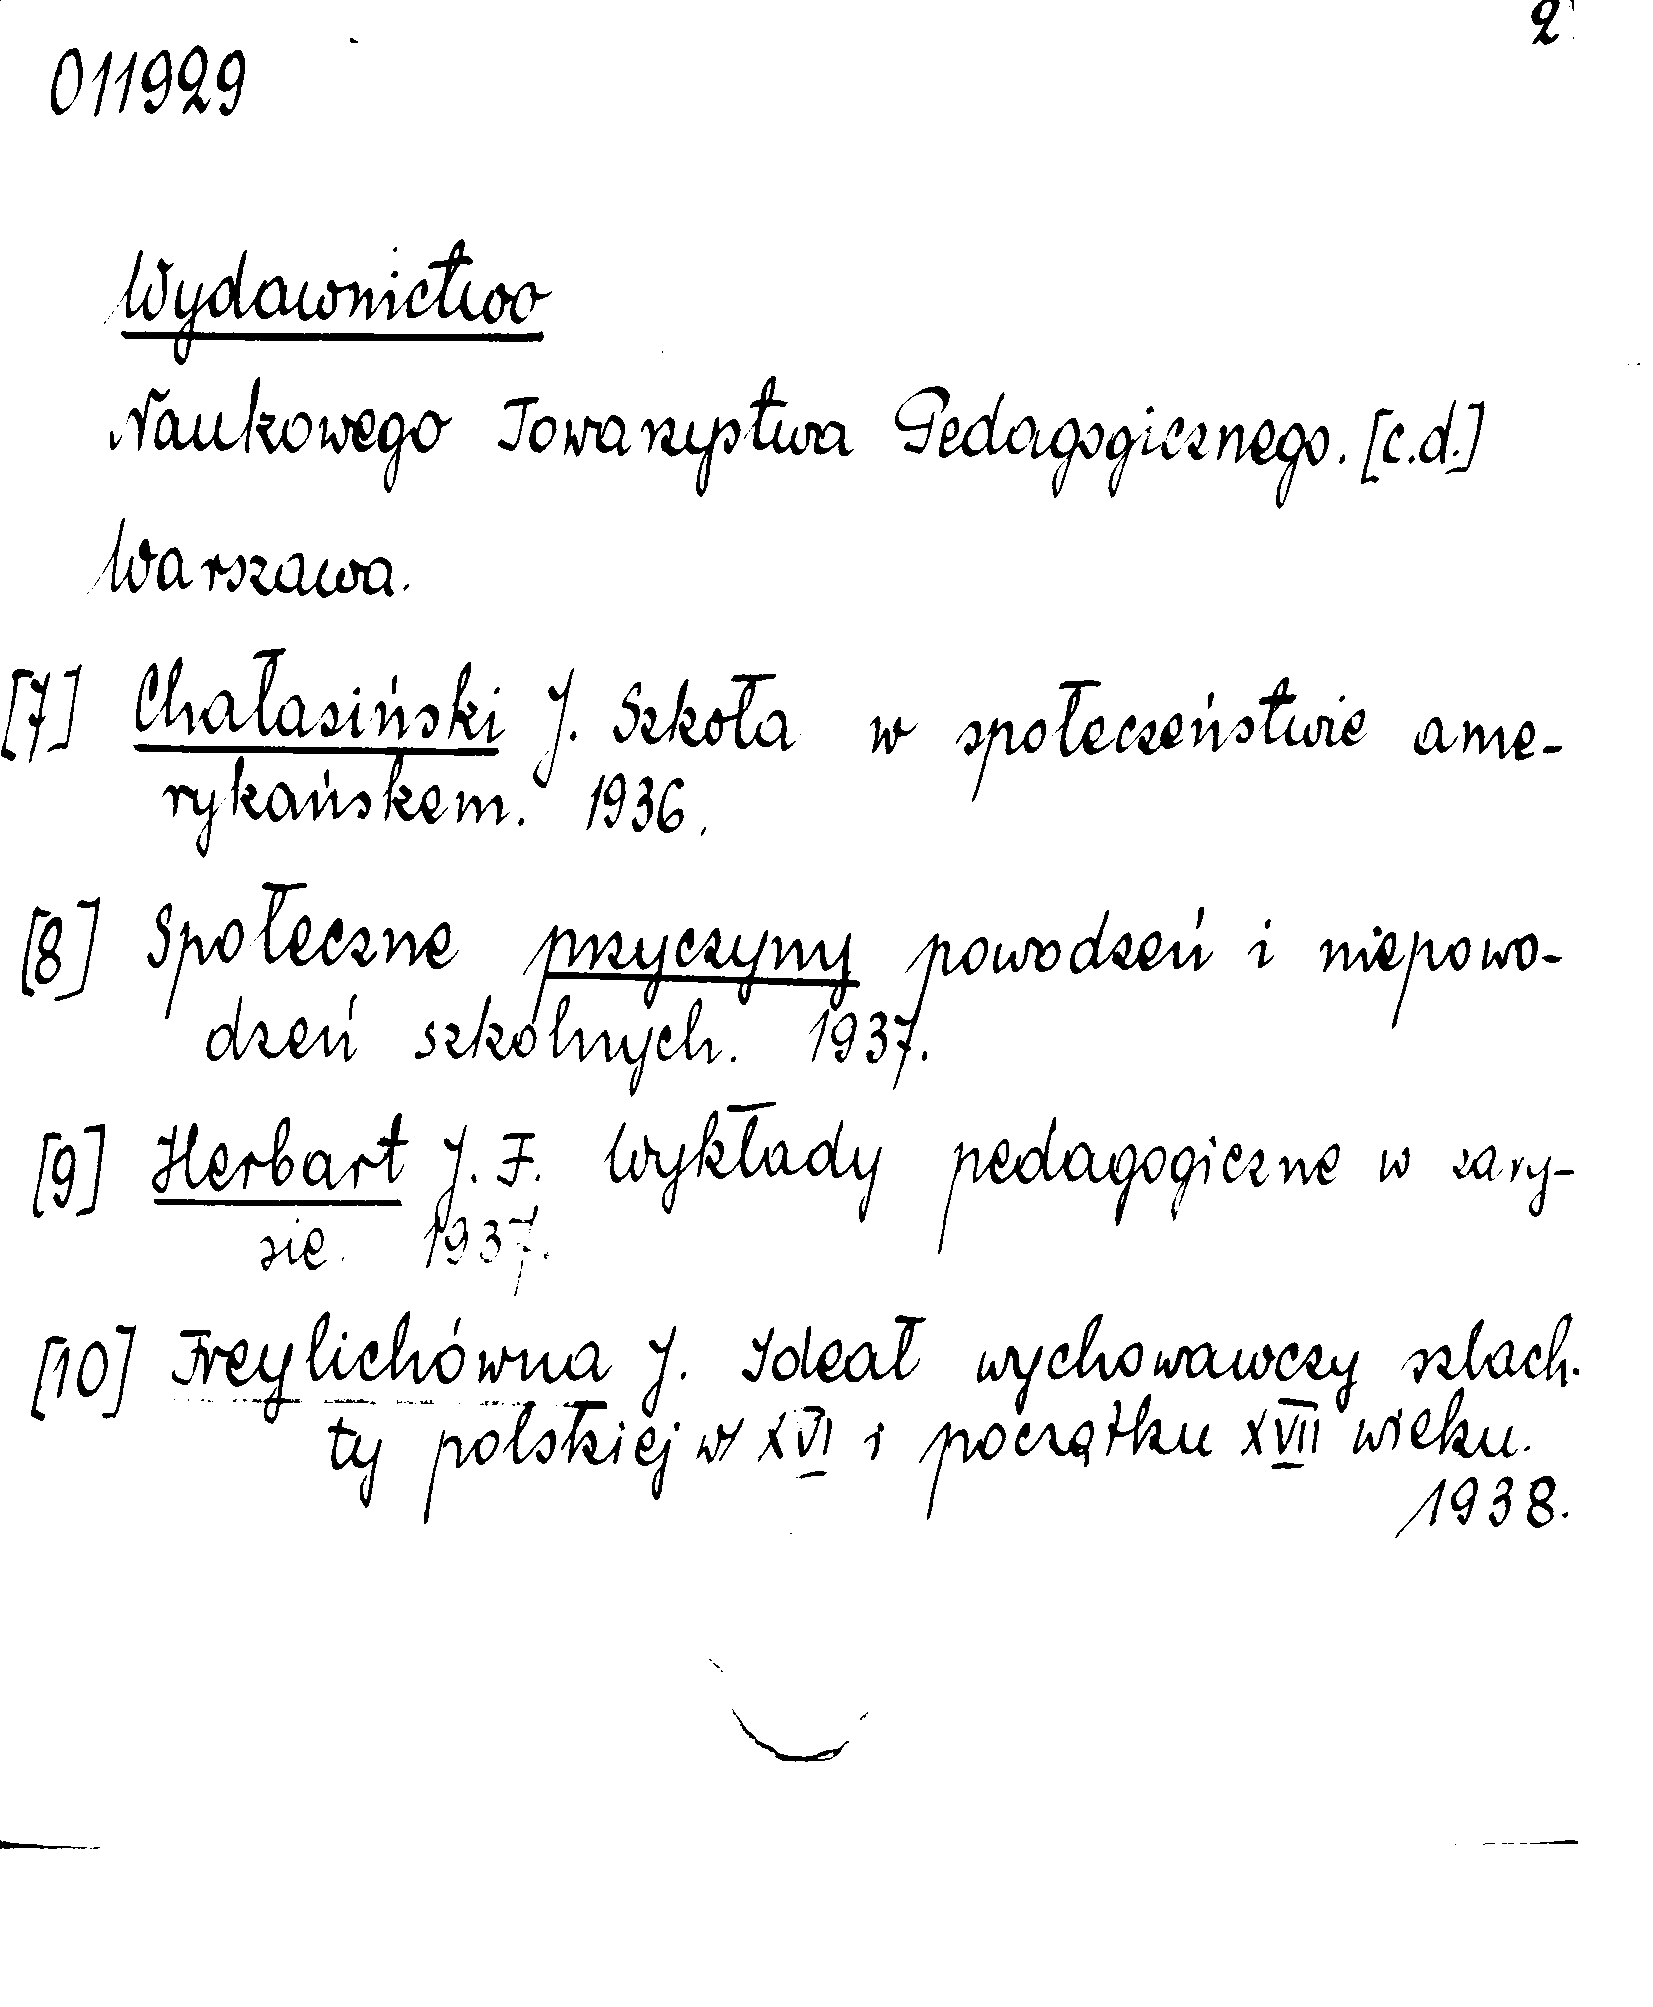 2
011929
Wydawnictwo
Naukowego Towarzystwa Pedagogicznego. [c.d.]
Warszawa.
[7] Chałasiński J. Szkoła w społeczeństwie ame-
rykańskem. 1936.
[8] Społeczne przyczyny powodzeń i niepowo-
dzeń szkolnych. 1937.
[9] Herbart J. F. Wykłady pedagogiczne w zary-
sie. 1937.
[10] Freylichówna J. Ideał wychowawczy szlach-
ty polskiej w XVI i początku XVII wieku.
1938.